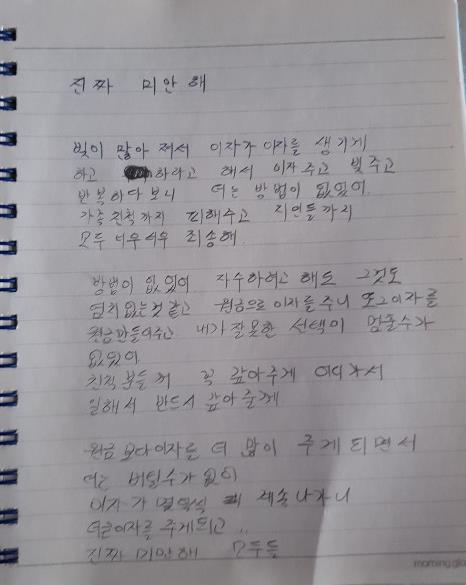 진짜 미안해
빚이 많아 져서 이자가 이자를 생기게
하고 하라고 해서 이자 주고 빚주고
반복하다보니 더는 방법이 없었어.
가족 친척까지 피해주고 지인들까지
모두 너무너무 죄송해.
방법이 없었어. 자수하려고 해도 그것도
염치 없는것 같고 원금으로 이자를 주니 또 그 이자를
원금만들어주고 내가 잘못한 선택이 멈출수가
없었어.
친척 분들께 꼭 갚아주게 어디가서
일해서 반드시 갚아 줄께
원금 보다 이자를 더 많이 주게 되면서
더는 버틸수가 없어
이자가 계속 나가니
더큰이자를 주게되고..
진짜 미안해 모두들
morning glo